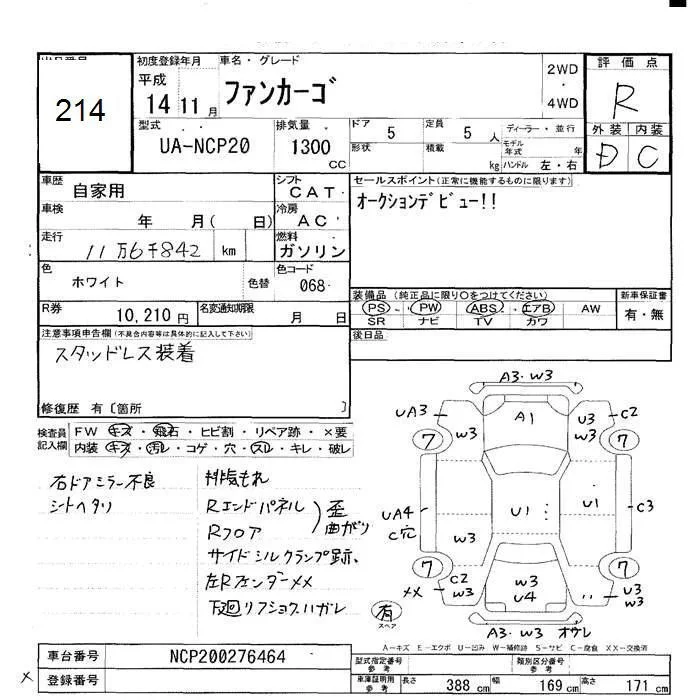 214
初度登録年月
平成
14 11 月
車名・グレード
ファンカーゴ
2WD
・
4WD
評価点
R
外装 内装
D C
型式
UA-NCP20
排気量
1300
CC
ドア 5
定員 5 人
形状
積載 kg
ディーラー・並行
モデル年式 年
ハンドル 左・右
車歴
自家用
シフト
CAT
セールスポイント(正常に機能するものに限ります)
オークションデビュー!!
車検
年 月( 日)
冷房
AC
走行
11万6千842 km
燃料
ガソリン
色
ホワイト
色替
色コード
068
装備品(純正品に限り○をつけてください)
PS・PW ABS・エアB AW
SR ナビ TV カワ
新車保証書
有・無
R券
10,210円
名変通知期限
月 日
後日品
注意事項申告欄(不具合内容等は具体的に記入して下さい)
スタッドレス装着
修復歴 有〔箇所 〕
検査員記入欄
FW キズ・飛石・ヒビ割・リペア跡・×要
内装 キズ・汚レ・コゲ・穴・スレ・キレ・破レ
右ドアミラー不良
シートヘタリ
排気もれ
Rエンドパネル
Rフロア
歪
曲がり
サイドシルクランプ跡、
左Rフェンダー××
下廻リフショクハガレ
A3・W3
UA3
W3
A1
U3
W3
C2
7
7
UA4
C穴
W3
U1
U1
C3
7
7
××
C2
W3
W3
U4
U3
W3
有
スペア
A3・W3
オクレ
A-キズ E-エクボ U-凹み W-補修跡 S-サビ C-腐食 ××-交換済
車台番号
NCP200276464
登録番号
×
型式指定番号
参考
類別区分番号
参考
車庫証明用
参考
長さ 388 cm
幅 169 cm
高さ 171 cm